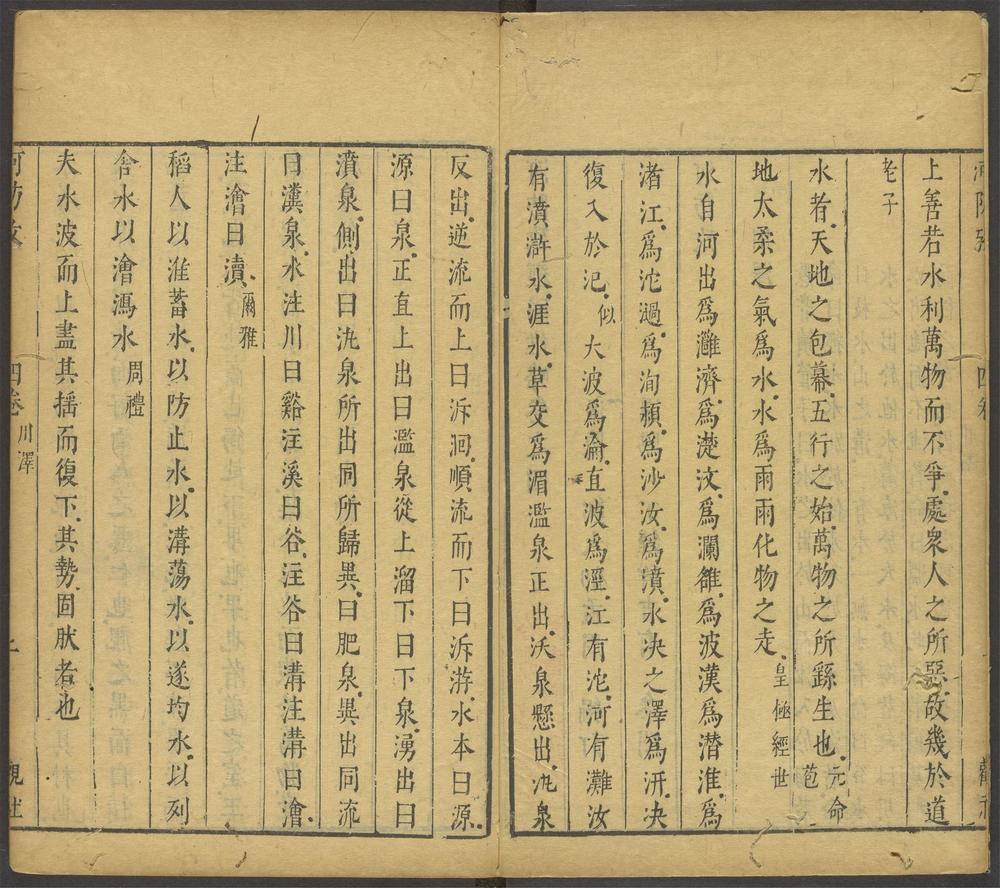 上善若水利萬物而不爭處衆人之所惡故幾於道
老子
水者天地之包幕五行之始萬物之所繇生也元命苞
地太柔之氣爲水水爲雨雨化物之走皇極經世
水自河出爲灉濟爲濋汶爲灡雒爲波漢爲潛淮爲
滸江爲沱濄爲洵潁爲沙汝爲濆水决之澤爲汧决
復入於汜似大波爲瀹直波爲涇江有沱河有灘汝
有濆滸水涯水草交爲湄濫泉正出沃泉懸出氿泉
反出逆流而上曰泝洄順流而下曰泝游水本曰源
源曰泉正直上出曰濫泉從上溜下曰下泉湧出曰
濆泉側出曰氿泉所出同所歸異曰肥泉異出同流
曰瀵泉水注川曰谿注溪曰谷注谷曰溝注溝曰澮
注澮曰瀆爾雅
稻人以淮蓄水以防止水以溝蕩水以遂均水以列
舍水以澮瀉水周禮
夫水波而上盡其揺而復下其勢固肰者也
四卷川澤